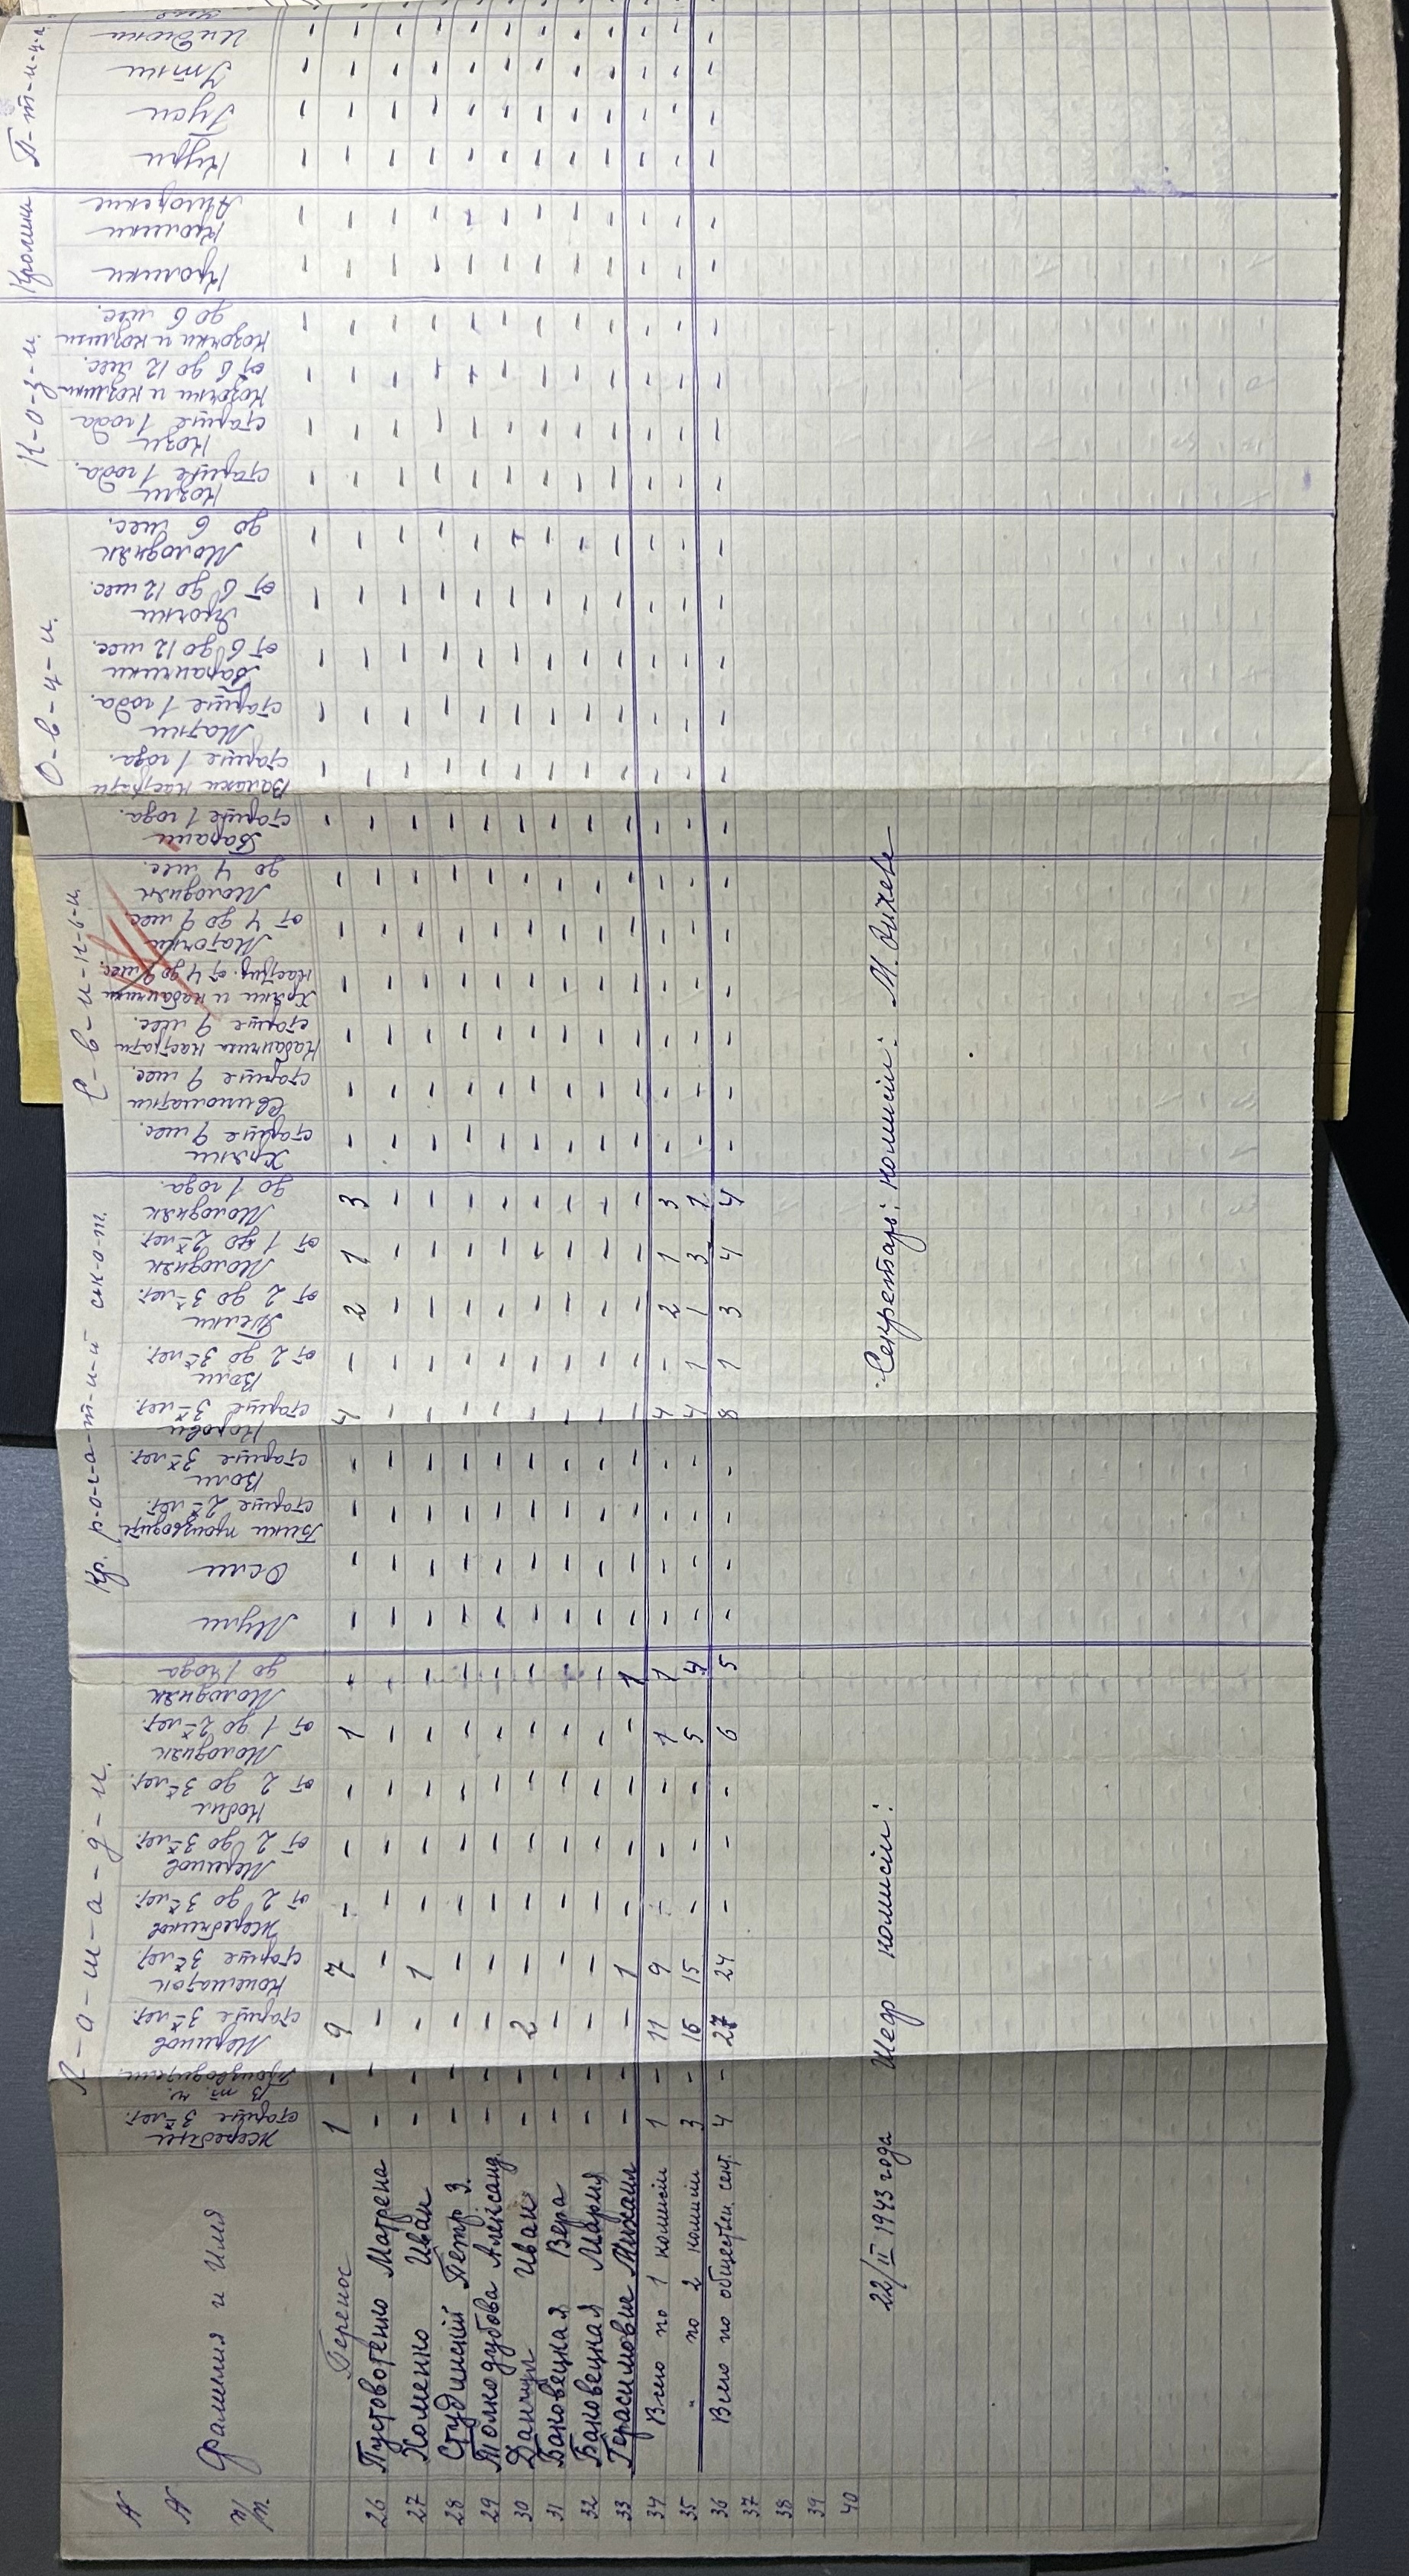 Л-о-ш-а-д-и.
Кр. р-о-г-а-т-и-й ск-о-т.
С-в-и-н-ь-и.
О-в-ц-и.
К-о-з-и.
Кролики
П-т-и-ц-а
N N п/п.
Фамилия и Имя
Жеребцы старше 3х лет.
В т. ч. производител.
Меринов старше 3х лет.
Конематок старше 3х лет
Жеребчиков от 2 до 3х лет.
Меринов от 2 до 3х лет.
Кобил от 2 до 3х лет.
Молодняк от 1 до 2х лет.
Молодняк до 1 года
Мули
Осли
Бики производит. старше 2х лет.
Воли старше 3х лет.
Корови старше 3х лет.
Воли от 2 до 3х лет.
Телки от 2 до 3х лет.
Молодняк от 1 до 2х лет.
Молодняк до 1 года.
Хряки старше 9 мес.
Свиноматки старше 9 мес.
Кабанчики кастрати старше 9 мес.
Хряки и кабанчики кастрир. от 4 до 9 мес.
Маточки от 4 до 9 мес.
Молодняк до 4 мес.
Барани старше 1 года.
Валахи кастрати старше 1 года.
Матки старше 1 года.
Баранчики от 6 до 12 мес.
Ярочки от 6 до 12 мес.
Молодняк до 6 мес.
Козли старше 1 года.
Кози старше 1 года
Козочки и козлики от 6 до 12 мес.
Козочки и козлики до 6 мес.
Кролики
Кролики Ангорские
Кури
Гуси
Утки
Индюки
Перенос 1 - 9 7 - - - 1 - - - - - 4 - 2 1 3 - - - - - - - - - - - - - - - - - - - - - -
26 Пустовотенко Матрена - - - - - - - - - - - - - - - - - - - - - - - - - - - - - - - - - - - - - - - -
27 Хоменко Иван - - - 1 - - - - - - - - - - - - - - - - - - - - - - - - - - - - - - - - - - - -
28 Студинский Петр З. - - - - - - - - - - - - - - - - - - - - - - - - - - - - - - - - - - - - - - - -
29 Толкодубова Александ. - - - - - - - - - - - - - - - - - - - - - - - - - - - - - - - - - - - - - - - -
30 Данчул Иван - - 2 - - - - - - - - - - - - - - - - - - - - - - - - - - - - - - - - - - - - -
31 Баковецкая Вера - - - - - - - - - - - - - - - - - - - - - - - - - - - - - - - - - - - - - - - -
32 Баковецкая Мария - - - - - - - - - - - - - - - - - - - - - - - - - - - - - - - - - - - - - - - -
33 Герасимовие Михаил - - - 1 - - - - 1 - - - - - - - - - - - - - - - - - - - - - - - - - - - - - - -
34 Всего по 1 комисіи 1 - 11 9 - - - 1 1 - - - - 4 - 2 1 3 - - - - - - - - - - - - - - - - - - - - - -
35 " по 2 комисіи 3 - 16 15 - - - 5 4 - - - - 4 1 1 3 1 - - - - - - - - - - - - - - - - - - - - - -
36 Всего по обществен. сект. 4 - 27 24 - - - 6 5 - - - - 8 1 3 4 4 - - - - - - - - - - - - - - - - - - - - - -
37
38
39
40
22/II 1943 года Шеф комисіи: Секретарь комисіи: